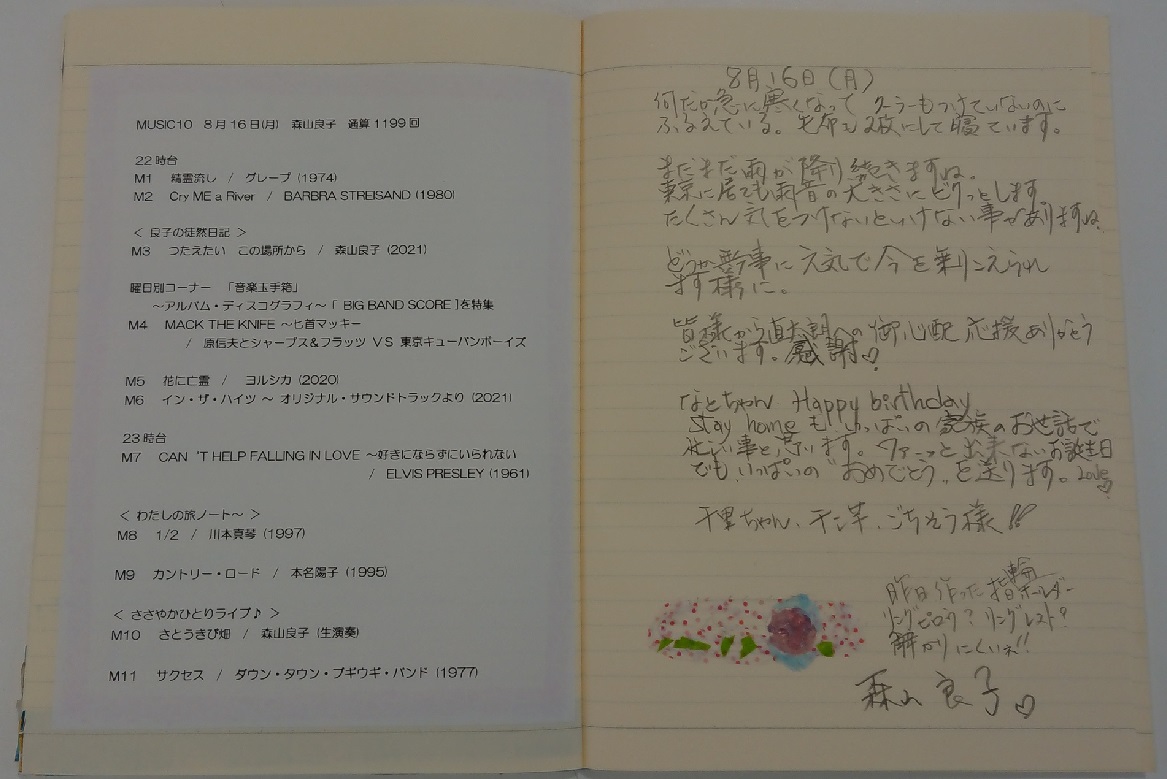 MUSIC10 8月16日(月) 森山良子 通算1199回
22時台
M1 精霊流し / グレープ (1974)
M2 Cry ME a River / BARBRA STREISAND (1980)
＜ 良子の徒然日記 ＞
M3 つたえたい この場所から / 森山良子 (2021)
曜日別コーナー 「音楽玉手箱」
～アルバム・ディスコグラフィ～「 BIG BAND SCORE ]を特集
M4 MACK THE KNIFE ～匕首マッキー
/ 原信夫とシャープス＆フラッツ VS 東京キューバンボーイズ
M5 花に亡霊 / ヨルシカ (2020)
M6 イン・ザ・ハイツ ～ オリジナル・サウンドトラックより (2021)
23時台
M7 CAN 'T HELP FALLING IN LOVE ～好きにならずにいられない
/ ELVIS PRESLEY (1961)
＜ わたしの旅ノート～ ＞
M8 1/2 / 川本真琴 (1997)
M9 カントリー・ロード / 本名陽子 (1995)
＜ ささやかひとりライブ♪ ＞
M10 さとうきび畑 / 森山良子 (生演奏)
M11 サクセス / ダウン・タウン・ブギウギ・バンド (1977)
8月16日(月)
何だか急に寒くなって クーラーもつけていないのに
ふるえている。毛布も2枚にして寝ています。
まだまだ雨が降り続きますね。
東京に居ても雨音の大きさにビクっとします。
たくさん気をつけないといけない事がありますね。
どうか無事に元気で今を乗りこえられ
ます様に。
皆様から直太朗への御心配 応援ありがとう
ございます。感謝♡
なとちゃん Happy birthday
Stay home もいっぱいの家族のお世話で
忙しい事と思います。ワァーっと出来ないお誕生日
でも、いっぱいの"おめでとう"を送ります。Love♡
千里ちゃん、干し芋、ごちそう様!!
昨日作った指輪ホルダー
リングピロウ? リングレスト?
解かりにくいネ!!
森山良子♡